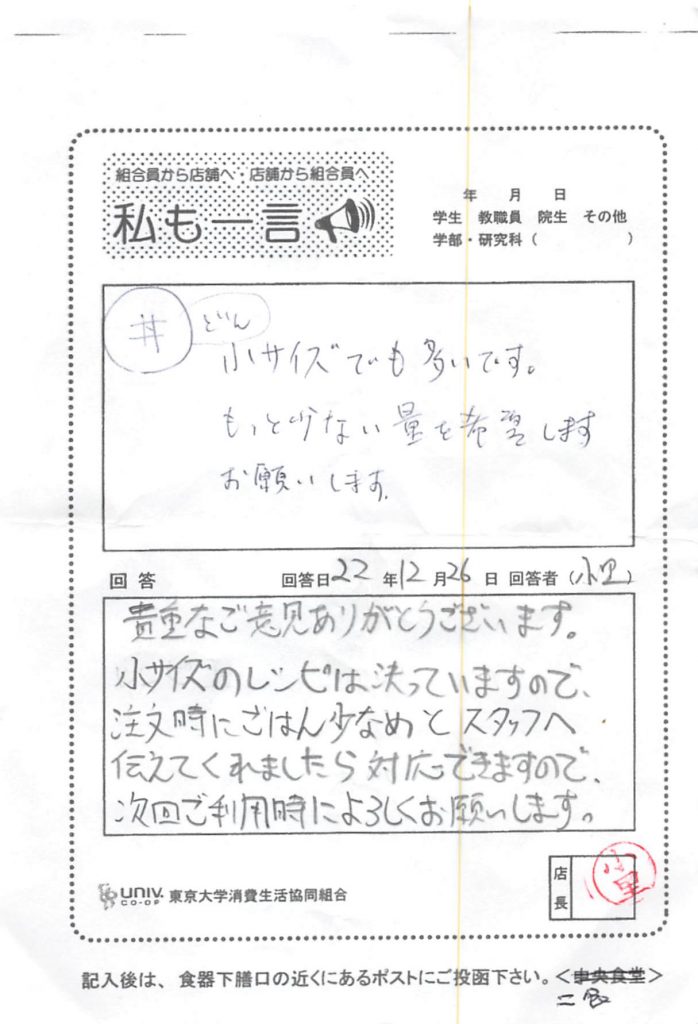 組合員から店舗へ・店舗から組合員へ
私も一言
年 月 日
学生 教職員 院生 その他
学部・研究科（ ）
丼
どん
小サイズでも多いです。
もっと少ない量を希望します
お願いします。
回答 回答日22年12月26日 回答者（小里）
貴重なご意見ありがとうございます。
小サイズのレシピは決っていますので、
注文時にごはん少なめとスタッフへ
伝えてくれましたら対応できますので、
次回ご利用時によろしくお願いします。
UNIV. CO-OP 東京大学消費生活協同組合
店長
小里
記入後は、食器下膳口の近くにあるポストにご投函下さい。＜中央食堂＞